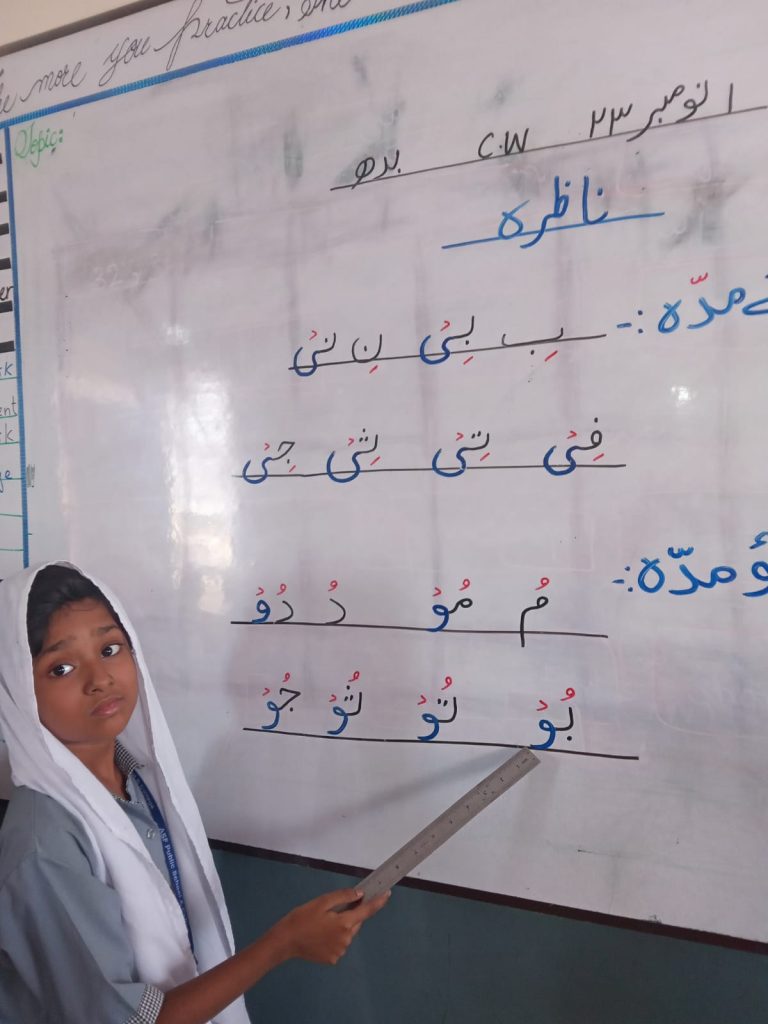 more you practice, the
Topic:
۱ نومبر ۲۳ C.W بدھ
ناظرہ
مدّہ :-
بِ بِیْ نِ نِیْ
فِیْ تِیْ ثِیْ جِیْ
ؤ مدّہ :-
مُ مُوْ دُ دُوْ
بُوْ تُوْ ثُوْ جُوْ